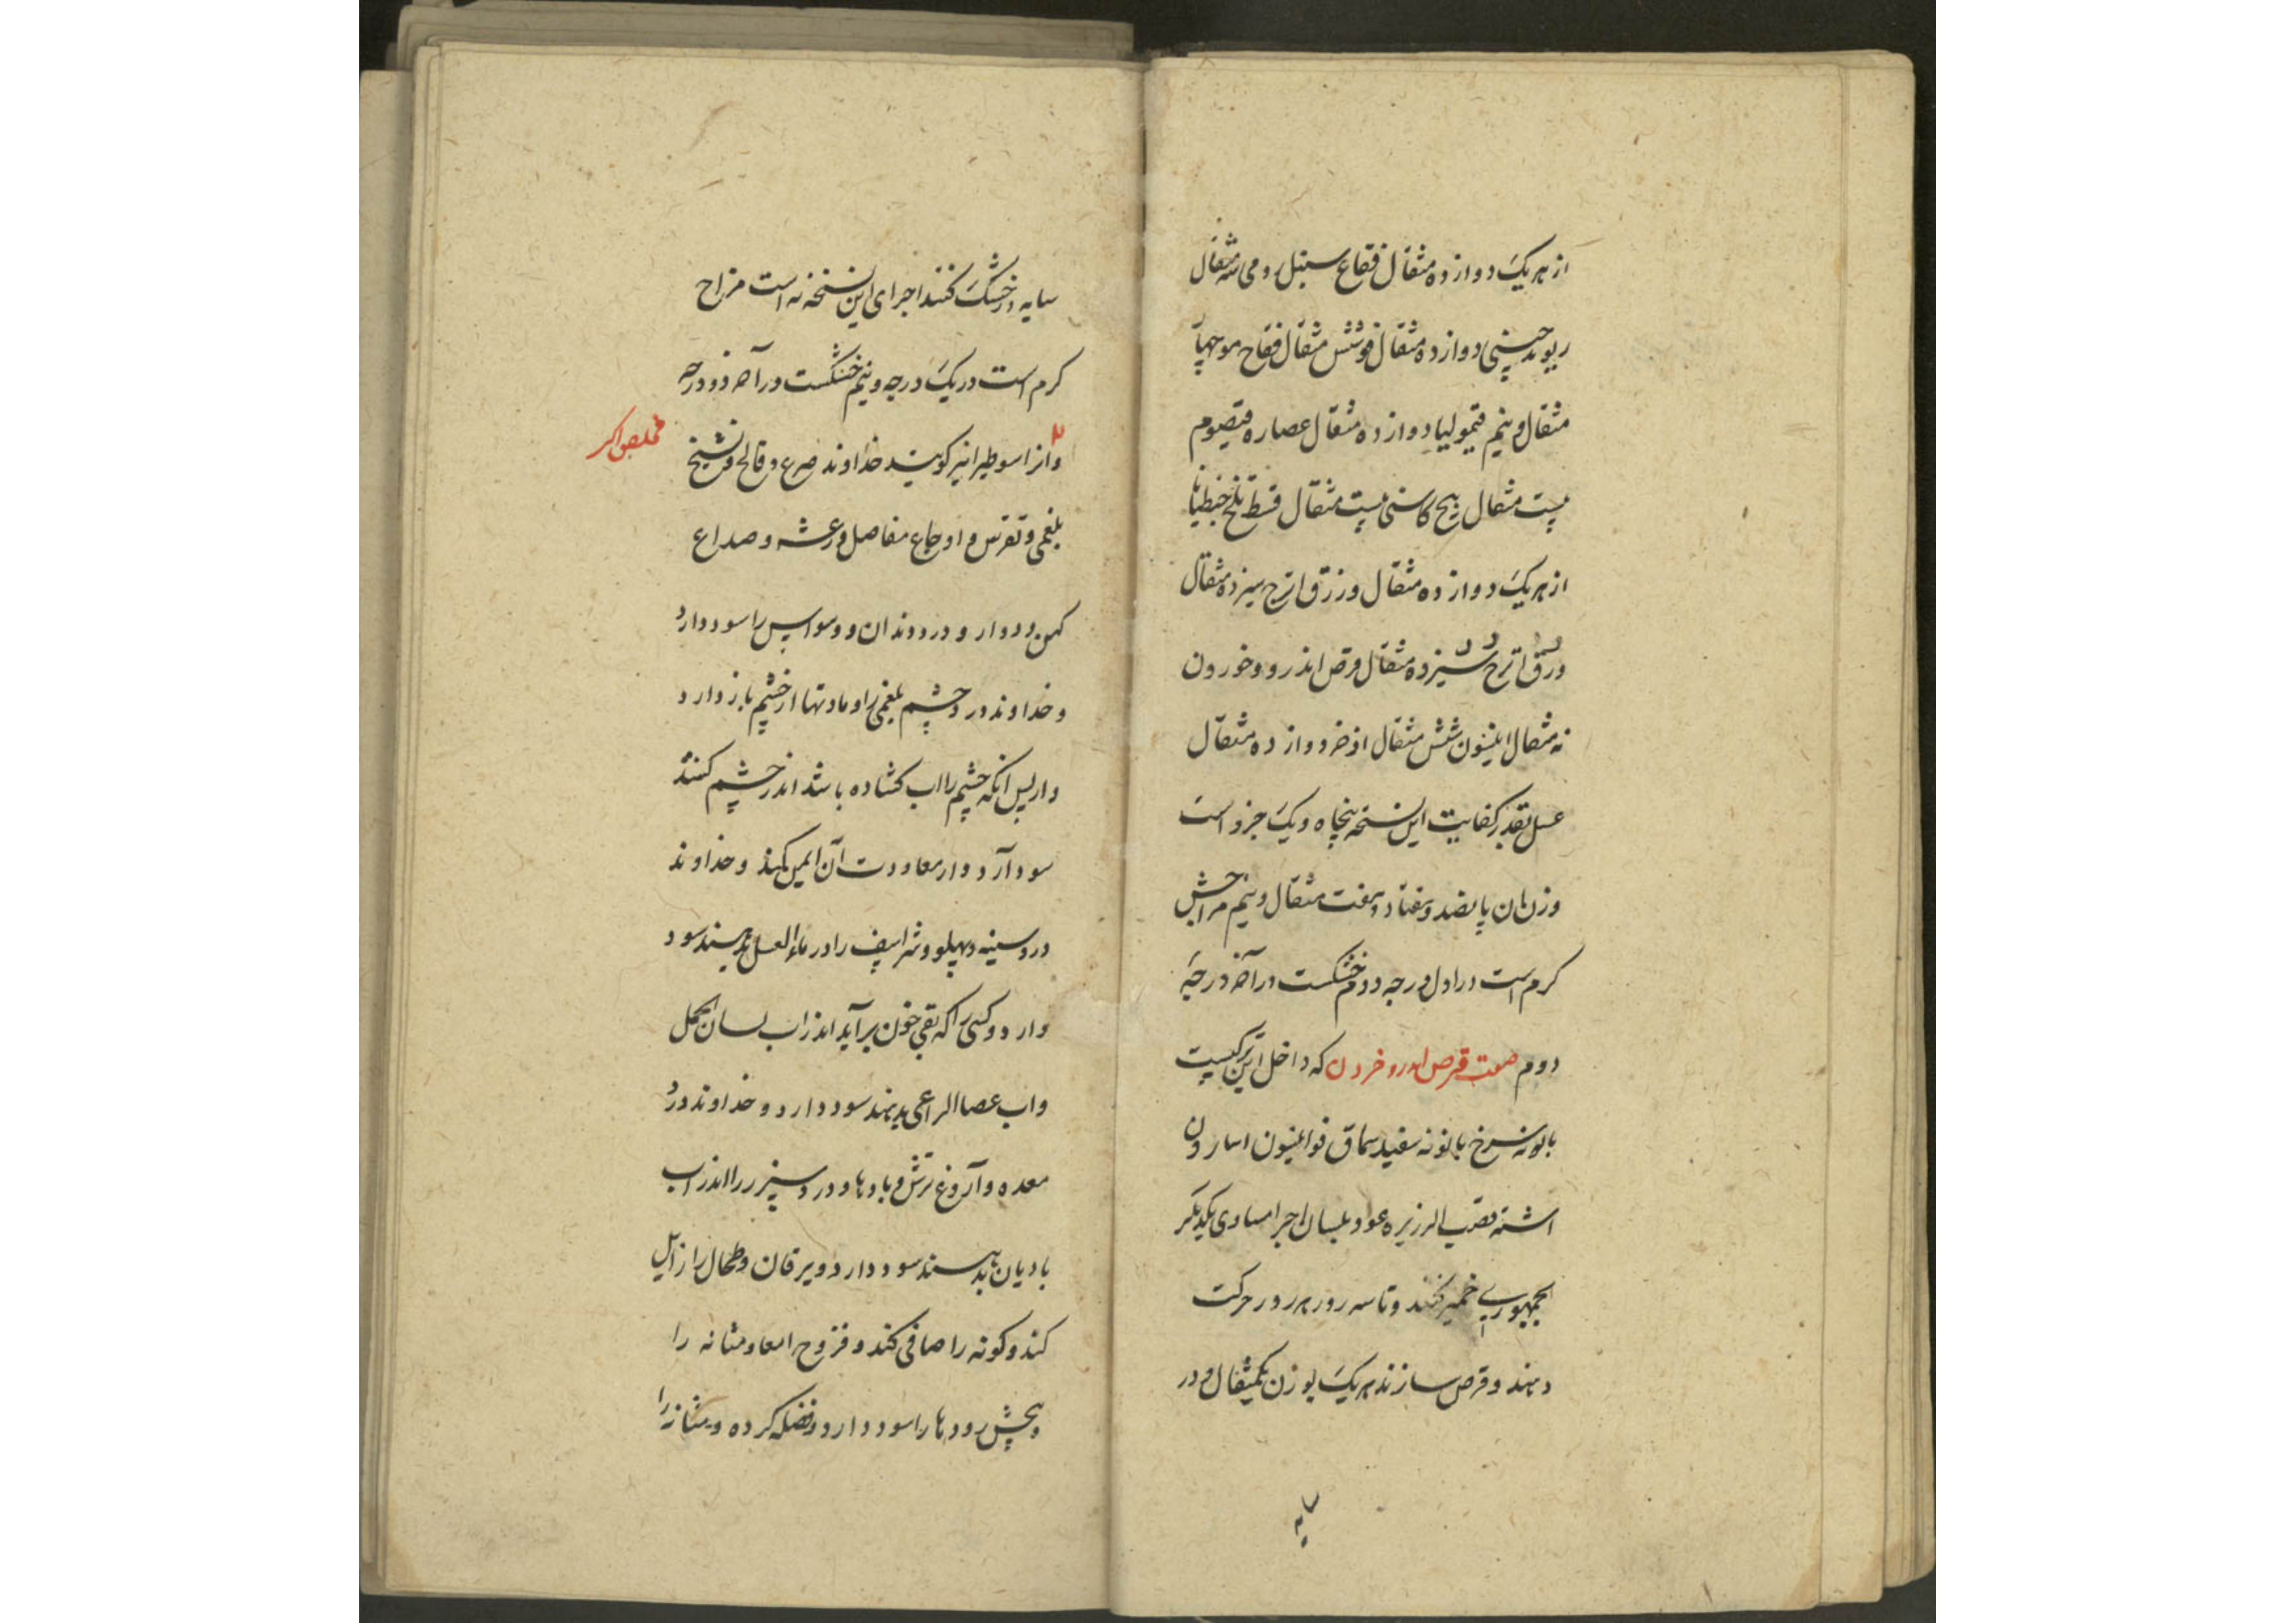 از هر یک دوازده مثقال فقاع سنبل رومی سه مثقال
ریوند چینی دوازده مثقال فو شش مثقال فقاح مو چهار
مثقال و نیم قیمولیا دوازده مثقال عصاره قیصوم
بیست مثقال بیخ کاسنی بیست مثقال قسط تلخ جنطیانا
از هر یک دوازده مثقال ورزق اترج سیزده مثقال
ورق اترج سیزده مثقال قرص اندروخورون
نه مثقال انیسون شش مثقال اذخر دوازده مثقال
عسل بقدر کفایت این نسخه پنجاه و یک جزو است
وزنان پانصد و هفتاد و هفت مثقال و نیم مزاجش
کرم است در اول درجه دوم خشکست در آخر درجه
دوم صفت قرص اندروخردن که داخل این ترکیبست
بابونه سرخ بابونه سفید سماق فو انیسون اسارون
اشنه قصب الزریره عود بلسان اجزا مساوی یکدیگر
بجمهوری خمیر کنند و تا سه روز هر روز حرکت
دهند و قرص سازند هر یک بوزن یکمثقال و در
سایه
سایه خشک کنند اجزای این نسخه نه است مزاج
کرم است در یک درجه و نیم خشکست در آخر دو درجه
وانرا سوطیرا نیز کویند خداوند صرع و فالج و تشنج
بلغمی و نقرس و اوجاع مفاصل و رعشه و صداع
کهن و دوار و درد دندان و وسواس را سود دارد
و خداوند درد چشم بلغمی را و مادتها از چشم باز دارد
و از پس آنکه چشم را اب کشاده باشد اندر چشم کنند
سود آرد و از معاودت آن ایمن کند و خداوند
درد سینه و پهلو و شراسیف را در ماء العسل بدهند سود
دارد و کسی را که بقی خون برآید اندر اب لسان الحمل
و اب عصا الراعی بدهند سود دارد و خداوند درد
معده و آروغ ترش و بادها و درد سپرز را اندر اب
بادیان بدهند سود دارد و یرقان و طحال را زایل
کند و کونه را صافی کند و قروح امعا و مثانه را
و پیچش رودها را سود دارد و فضله کرده و مثانه را